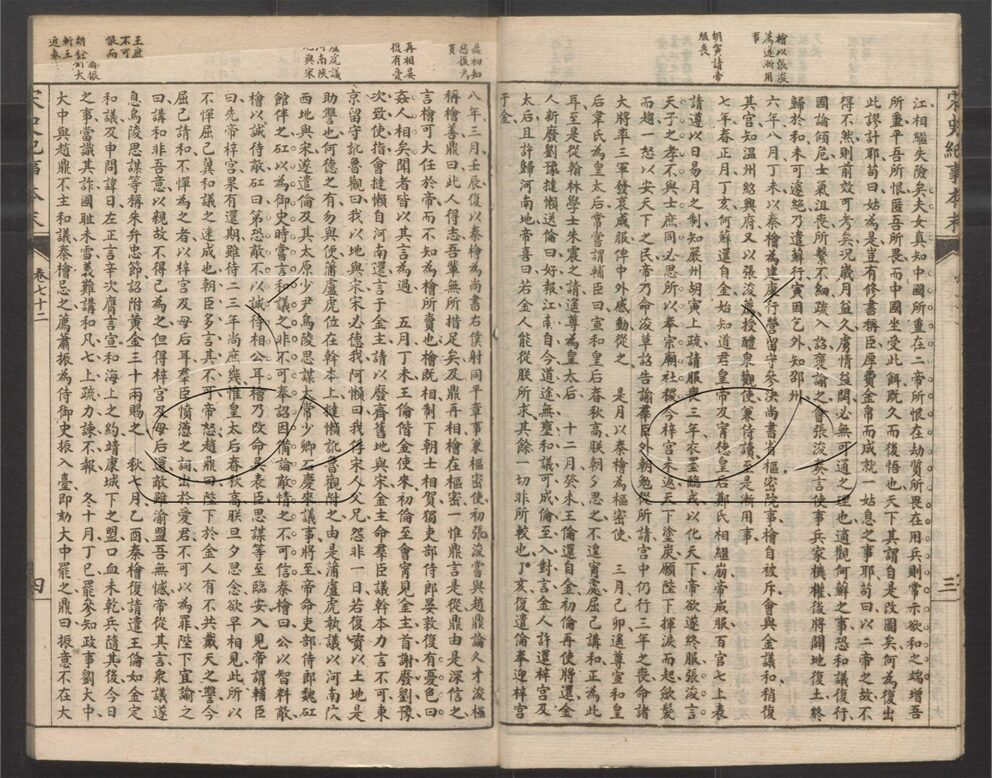 檜以張浚
薦遂漸用
事
胡寅請帝
服喪
宋史紀事本末
三
江相繼失險矣夫女真知中國所重在二帝所恨在劫質所畏在用兵則常示欲和之端增吾
所重平吾所恨匿吾所畏而中國坐受此餌既久而後悟也天下其謂自是改圖矣何為復出
此謬計耶苟曰姑為是豈有修書稱臣厚費金帛而成就一姑息之事耶苟曰以二帝之故不
得不然則前效可考矣況歲月益久虜情益閟必無可通之理也適觀何蘚之事恐和議復行
國論傾危士氣沮喪所繫不細疏入詔褒諭之會張浚奏言使事兵家機權後將闢地復土終
歸於和未可遽絕乃遣蘚行寅因乞外知邵州
六年八月丁未以秦檜為建康行營留守參決尚書省樞密院事檜自被斥會與金議和稍復
其官知溫州紹興府又以張浚薦授醴泉觀使兼侍讀至是漸用事
七年春正月丁亥何蘚還自金始知道君皇帝及寧德皇后鄭氏相繼崩帝成服百官七上表
請遵以日易月之制知嚴州胡寅上疏請服喪三年衣墨臨戎以化天下帝欲遂終服張浚言
天子之孝不與士庶同必思所以奉宗廟社稷今梓宮未返天下塗炭願陛下揮淚而起斂髮
而趨一怒以安天下之民帝乃命浚草詔告諭羣臣外朝勉從所請宮中仍行三年之喪命諸
大將率三軍發哀成服俾中外感動從之 是月以秦檜為樞密使 三月己卯遙尊宣和皇
后韋氏為皇太后帝嘗謂輔臣曰宣和皇后春秋高朕朝夕思之不遑寧處屈己講和正為此
耳至是從翰林學士朱震之請遙尊為皇太后 十二月癸未王倫還自金初倫再使將還金
人新廢劉豫撻懶送倫曰好報江南自今道途無壅和議可成倫至入對言金人許還梓宮及
太后且許歸河南地帝喜曰若金人能從朕所求其餘一切非所較也丁亥復遣倫奉迎梓宮
于金
鼎初知
惡復為
賣
再相晏
復有憂
地與宋
王庶
不可
恨而
胡銓
斬王
近秦
八年三月壬辰復以秦檜為尚書右僕射同平章事兼樞密使初張浚嘗與趙鼎論人才浚極
稱檜善鼎曰此人得志吾輩無所措足矣及鼎再相檜在樞密一惟鼎言是從鼎由是深信之
言檜可大任於帝而不知為檜所賣也檜既相制下朝士相賀獨吏部侍郎晏敦復有憂色曰
姦人相矣聞者皆以其言為過 五月丁未王倫偕金使來初倫至會寧見金主首謝廢劉豫
次致使指會撻懶自河南還言于金主請以廢齊舊地與宋金主命羣臣議幹本力言不可東
京留守訛魯觀曰我以地與宋宋必德我阿懶曰我俘宋人父兄怨非一日若復資以土地是
助讐也何德之有勿與便蒲盧虎位在幹本上撻懶訛魯觀附之由是蒲盧虎執議以河南陝
西地與宋遂遣倫及其太原少尹烏陵思謀太常少卿石慶來議事將至帝命吏部侍郎魏矼
館伴之矼以為御史時嘗言和議之非不可奉詔因備論敵情之不可信秦檜曰公以智料敵
檜以誠待敵矼曰第恐敵不以誠待相公耳檜乃改命吳表臣思謀等至臨安入見帝謂輔臣
曰先帝梓宮果有還期雖待二三年尚庶幾惟皇太后春秋高朕旦夕思念欲早相見此所以
不憚屈己冀和議之速成也朝臣多言其不可帝怒趙鼎曰陛下於金人有不共戴天之讐今
屈己請和不憚為之者以梓宮及母后耳羣臣憤懣之詞出於愛君不可以為罪陛下宜諭之
曰講和非吾意以親故不得已為之但得梓宮及母后還敵雖渝盟吾無憾帝從其言眾議遂
息烏陵思謀等稱朱弁忠節詔附黃金三十兩賜之 秋七月乙酉秦檜復請遣王倫如金定
和議及申問諱日左正言辛次膺言宣和海上之約靖康城下之盟口血未乾兵隨其後今日
之事當識其詐國恥未雪義難講和凡七上疏力諫不報 冬十月丁巳罷參知政事劉大中
大中與趙鼎不主和議秦檜忌之薦蕭振為侍御史振入臺即劾大中罷之鼎曰振意不在大
宋史紀事本末
卷七十二
四